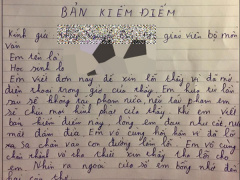 BẢN KIỂM ĐIỂM
Kính gửi giáo viên bộ môn
văn
Em tên là
Học sinh lớp
Em viết đơn này để xin lỗi thầy vì đã mở
điện thoại trong giờ của thầy. Em hứa từ lần
sau sẽ không tái phạm nữa, nếu tái phạm em
sẽ chịu mọi hình phạt của thầy. Khi em viết
bản kiểm điểm này lòng em đau như cắt, nước
mắt đầm đìa. Em vô cùng hối hận vì đã lỡ
sa chân vào con đường lầm lỗi. Em vô cùng
mong thầy tha lỗi cho
em. Nhìn ra ngoài cửa sổ em bỗng nhớ đến